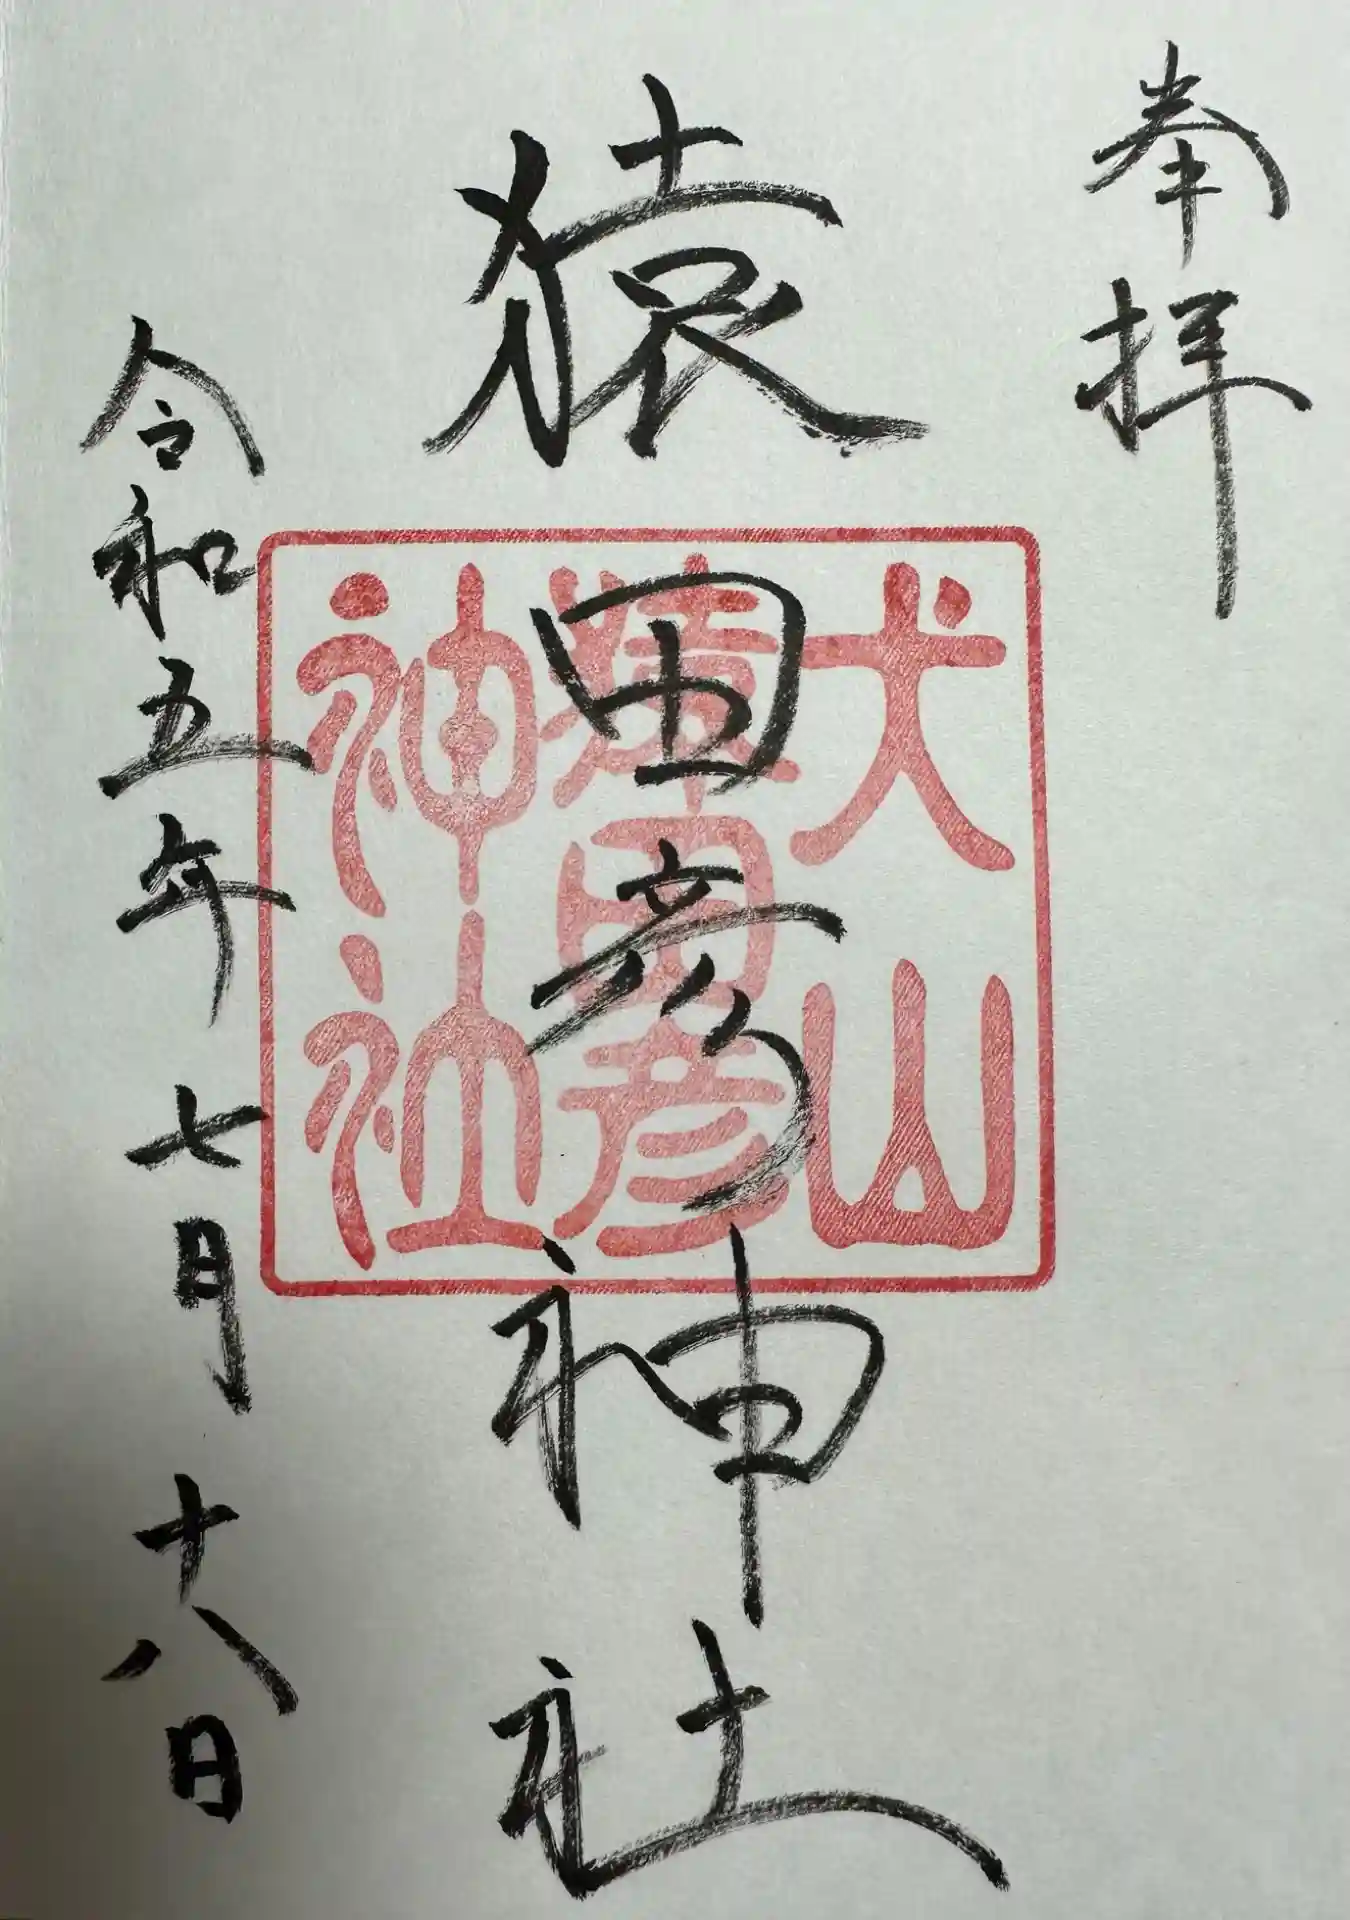 奉拝
猿田彦神社
犬山
猿田彦
神社
令和五年七月十八日